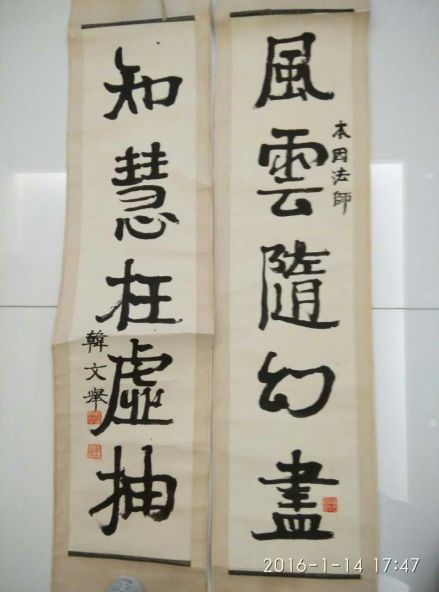 風雲隨幻盡
本因法師
知慧枉虛抽
韓文舉
2016-1-14 17:47